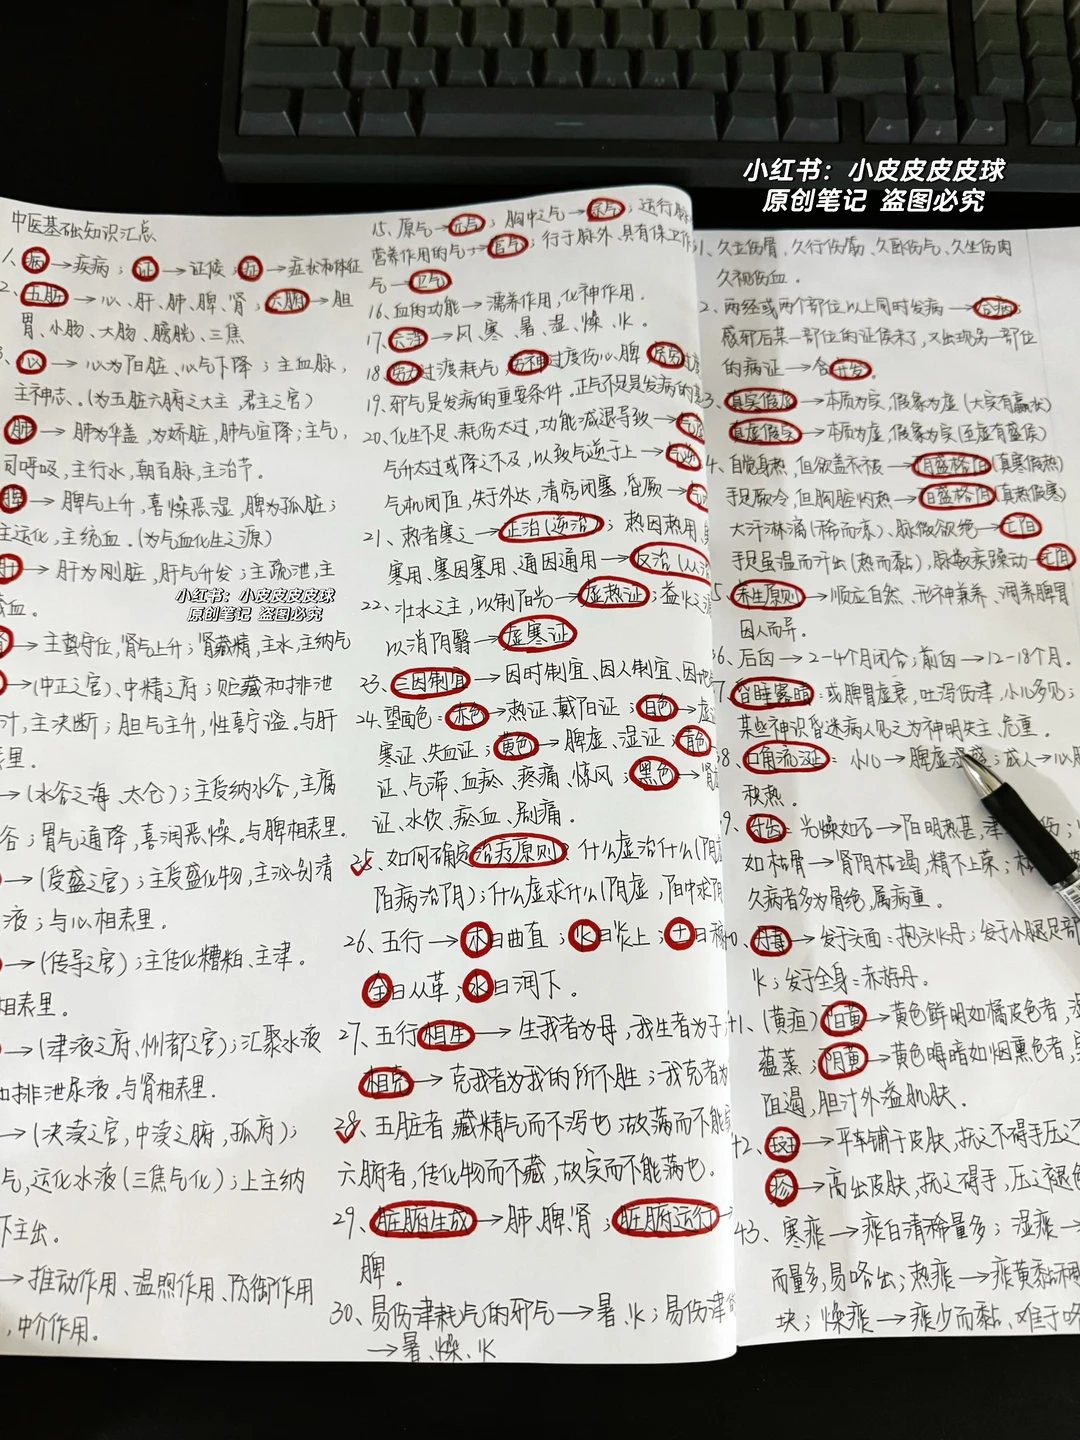 小红书：小皮皮皮皮球
原创笔记 盗图必究
中医基础知识汇总
1、病→疾病；证→证候；症→症状和体征
2、五脏→心、肝、肺、脾、肾；六腑→胆
胃、小肠、大肠、膀胱、三焦
、心→心为阳脏、心气下降；主血脉，
主神志。(为五脏六腑之大主，君主之官)
肺→肺为华盖，为娇脏，肺气宣降；主气，
司呼吸，主行水，朝百脉，主治节。
脾→脾气上升，喜燥恶湿，脾为孤脏；
主运化，主统血。(为气血化生之源)
肝→肝为刚脏，肝气升发；主疏泄，主
藏血。
小红书：小皮皮皮皮球
原创笔记 盗图必究
→主蛰守位，肾气上升；肾藏精，主水，主纳气
→(中正之官)、中精之府；贮藏和排泄
汁，主决断；胆气主升，性喜宁谧。与肝
表里。
→(水谷之海、太仓)；主受纳水谷，主腐
谷；胃气通降，喜润恶燥。与脾相表里.
→(受盛之官)；主受盛化物，主泌别清
液；与心相表里.
→(传导之官)；主传化糟粕、主津.
相表里.
→(津液之府、州都之官)；汇聚水液
和排泄尿液。与肾相表里.
→(决渎之官，中渎之腑，孤府)；
气，运化水液(三焦气化)；上主纳
下主出。
→推动作用、温煦作用、防御作用
，中介作用.
15、原气→元气；胸中之气→宗气；运行脉
营养作用的气→营气；行于脉外、具有保卫作
气→卫气
16、血的功能→濡养作用，化神作用.
17、六淫→风、寒、暑、湿、燥、火.
18、劳力过渡耗气，劳神过度伤心、脾，房劳过
19、邪气是发病的重要条件.正气不足是发病的
20、化生不足、耗伤太过，功能减退导致→气
气升太过或降之不及，以致气逆于上→气逆
气机闭阻，失于外达，清窍闭塞，昏厥→气
21、热者寒之→正治(逆治)；热因热用，
寒用、塞因塞用、通因通用→反治(从治
22、壮水之主，以制阳光→虚热证；益火之
以消阴翳→虚寒证
23、三因制宜→因时制宜、因人制宜、因地
24、望面色：赤色→热证、戴阳证；白色→虚
寒证、失血证；黄色→脾虚、湿证；青色
证、气滞、血瘀、疼痛、惊风；黑色→肾
证、水饮、瘀血、剧痛.
25、如何确定治疗原则？什么虚治什么(阴
阳病治阴)；什么虚求什么(阴虚，阳中求阴
26、五行→木曰曲直；火曰炎上；土曰稼
金曰从革；水曰润下。
27、五行相生→生我者为母，我生者为子
相克→克我者为我的所不胜；我克者为
28、五脏者，藏精气而不泻也，故满而不能
六腑者，传化物而不藏，故实而不能满也.
29、脏腑生成→肺、脾、肾；脏腑运行→
脾.
30、易伤津耗气的邪气→暑、火；易伤津
→暑、燥、火
1、久立伤骨、久行伤筋、久卧伤气、久坐伤肉
久视伤血.
2、两经或两个部位以上同时发病→合病；
感邪后某一部位的证候未了，又出现另一部位
的病证→合并发.
3、真实假虚→本质为实，假象为虚(大实有羸状)
真虚假实→本质为虚，假象为实(至虚有盛候)
4、自觉身热，但欲盖衣被→阴盛格阳(真寒假热)
手足厥冷，但胸腹灼热→阳盛格阴(真热假寒)
大汗淋漓(稀而凉)、脉微欲绝→亡阳
手足虽温而汗出(热而黏)，脉数疾躁动→亡阴
5、养生原则→顺应自然、形神兼养、调养脾胃
因人而异.
36、后囟→2-4个月闭合；前囟→12-18个月.
37、昏睡露睛：或脾胃虚衰，吐泻伤津，小儿多见；
某些神识昏迷病人见之为神明失主、危重.
38、口角流涎：小儿→脾虚湿盛；成人→心脾
积热.
9、望齿：光燥如石→阳明热甚，津 伤；
如枯骨→肾阴枯竭，精不上荣；枯
久病者多为骨绝，属病重.
0、丹毒→发于头面：抱头火丹；发于小腿足部
火；发于全身：赤游丹.
41、(黄疸)阳黄→黄色鲜明如橘皮色者，
蕴蒸；阴黄→黄色晦暗如烟熏色者，
阻遏，胆汁外溢肌肤.
42、斑→平铺于皮肤，抚之不碍手，压之不
疹→高出皮肤，抚之碍手，压之褪色
43、寒痰→痰白清稀量多；湿痰→
而量多，易咯出；热痰→痰黄黏稠
块；燥痰→痰少而黏、难于咯